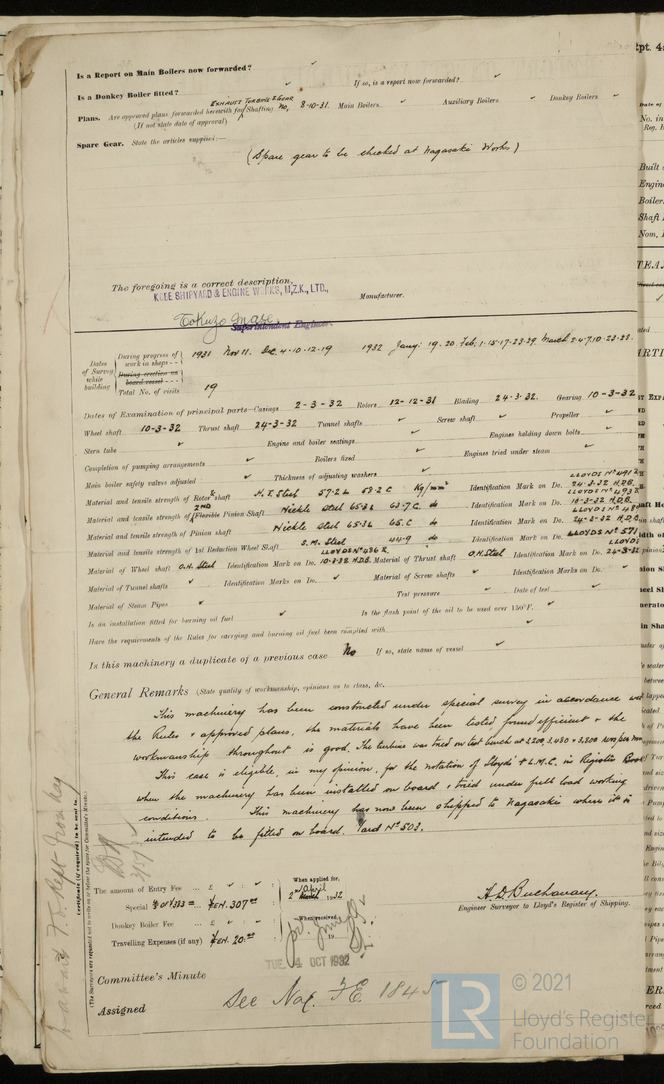 Is a Report on Main Boilers now forwarded? ✓
Is a Donkey Boiler fitted? ✓ If so, is a report now forwarded? ✓
EXHAUST TURBINE & GEAR
Plans. Are approved plans forwarded herewith for Shafting No, 8-10-31. Main Boilers ✓ Auxiliary Boilers ✓ Donkey Boilers ✓
(If not state date of approval)
Spare Gear. State the articles supplied:—
(Spare gear to be checked at Nagasaki Works)
The foregoing is a correct description,
KOBE SHIPYARD & ENGINE WORKS, M.Z.K., LTD.,
Manufacturer.
Superintendent Engineer.
Dates of Survey while building
During progress of work in shops - - 1931 Nov 11. Dec. 4.10.12.19 1932 Jany. 19.20. Feb. 1.15.17.23.29. March 2.4.7.10.23.28.
During erection on board vessel - - -
Total No. of visits 19
Dates of Examination of principal parts—Casings 2-3-32 Rotors 12-12-31 Blading 24-3-32. Gearing 10-3-32
Wheel shaft 10-3-32 Thrust shaft 24-3-32 Tunnel shafts ✓ Screw shaft ✓ Propeller ✓
Stern tube ✓ Engine and boiler seatings ✓ Engines holding down bolts ✓
Completion of pumping arrangements ✓ Boilers fixed ✓ Engines tried under steam ✓
Main boiler safety valves adjusted ✓ Thickness of adjusting washers ✓
Material and tensile strength of Rotor shaft H.T. Steel 57.2 & 58.2 Kg/mm² Identification Mark on Do. 24-3-32 H.D.B.
Material and tensile strength of 2ND Flexible Pinion Shaft Nickle Steel 65.3 & 63.7 C. do Identification Mark on Do. 10-3-32 H.D.B.
Material and tensile strength of Pinion shaft Nickle Steel 65.3 & 65. C do Identification Mark on Do. 24-3-32 H.D.B.
Material and tensile strength of 1st Reduction Wheel Shaft S.M. Steel 44.9 do Identification Mark on Do. LLOYDS Nº 571
LLOYDS Nº 436 LLOYDS
Material of Wheel shaft O.H. Steel Identification Mark on Do. 10-3-32 H.D.B. Material of Thrust shaft O.H. Steel Identification Mark on Do. 24-3-32
Material of Tunnel shafts ✓ Identification Marks on Do. ✓ Material of Screw shafts ✓ Identification Marks on Do. ✓
Material of Steam Pipes ✓ Test pressure ✓ Date of test ✓
Is an installation fitted for burning oil fuel ✓ Is the flash point of the oil to be used over 150°F. ✓
Have the requirements of the Rules for carrying and burning oil fuel been complied with ✓
Is this machinery a duplicate of a previous case No If so, state name of vessel ✓
General Remarks (State quality of workmanship, opinions as to class, &c.
This machinery has been constructed under special survey in accordance with
the Rules & approved plans, the materials have been tested found efficient & the
workmanship throughout is good. The turbine was tried on test bench at 2,200, 3,480 & 3,800 revs per min
This case is eligible, in my opinion, for the notation of Lloyd's + L.M.C. in Register Book
when the machinery has been installed on board & tried under full load working
conditions. This machinery has now been shipped to Nagasaki where it is
intended to be fitted on board. Yard Nº 503.
Certificate (if required) to be sent to
(The Surveyors are requested not to write on or below the space for Committee's Minute.)
The amount of Entry Fee ... £ : : When applied for,
Special YEN. 307.00 2 April 1932
Donkey Boiler Fee ... £ : : When received,
Travelling Expenses (if any) YEN. 20.00 19
H.D. Buchanan.
Engineer Surveyor to Lloyd's Register of Shipping.
TUE 4 OCT 1932
Committee's Minute
Assigned See Nag. F.E. 1845
© 2021
LR Lloyd's Register
Foundation